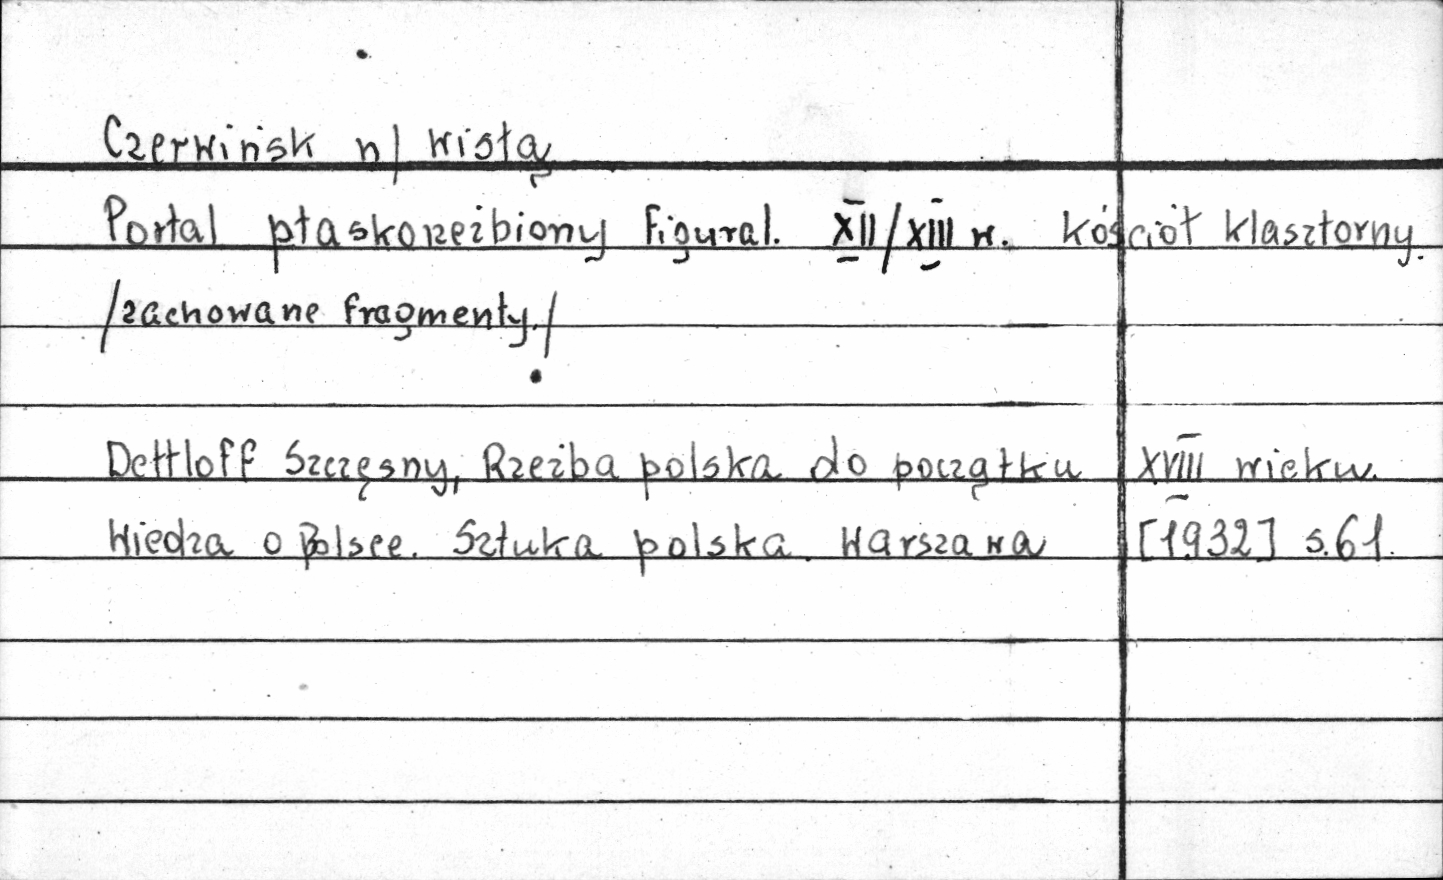 Czerwińsk n/ Wisłą
Portal płaskorzeźbiony figural. XII/XIII w. kościół klasztorny.
/zachowane fragmenty./
Dettloff Szczęsny, Rzeźba polska do początku XVIII wieku.
Wiedza o Polsce. Sztuka polska. Warszawa [1932] s.61.